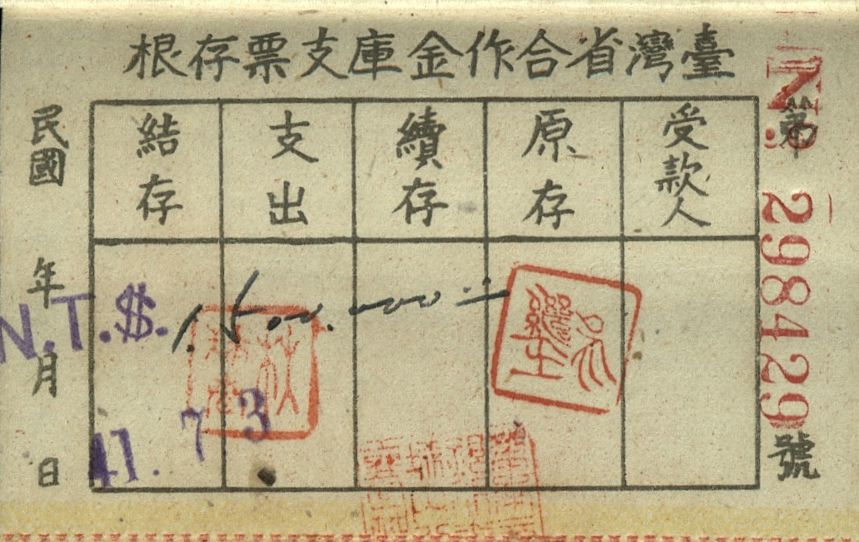 臺灣省合作金庫支票存根
第 No 298429 號
受款人
原存
續存
支出
結存
民國 年 月 日
N.T.$. 1.500.000
41. 7 3